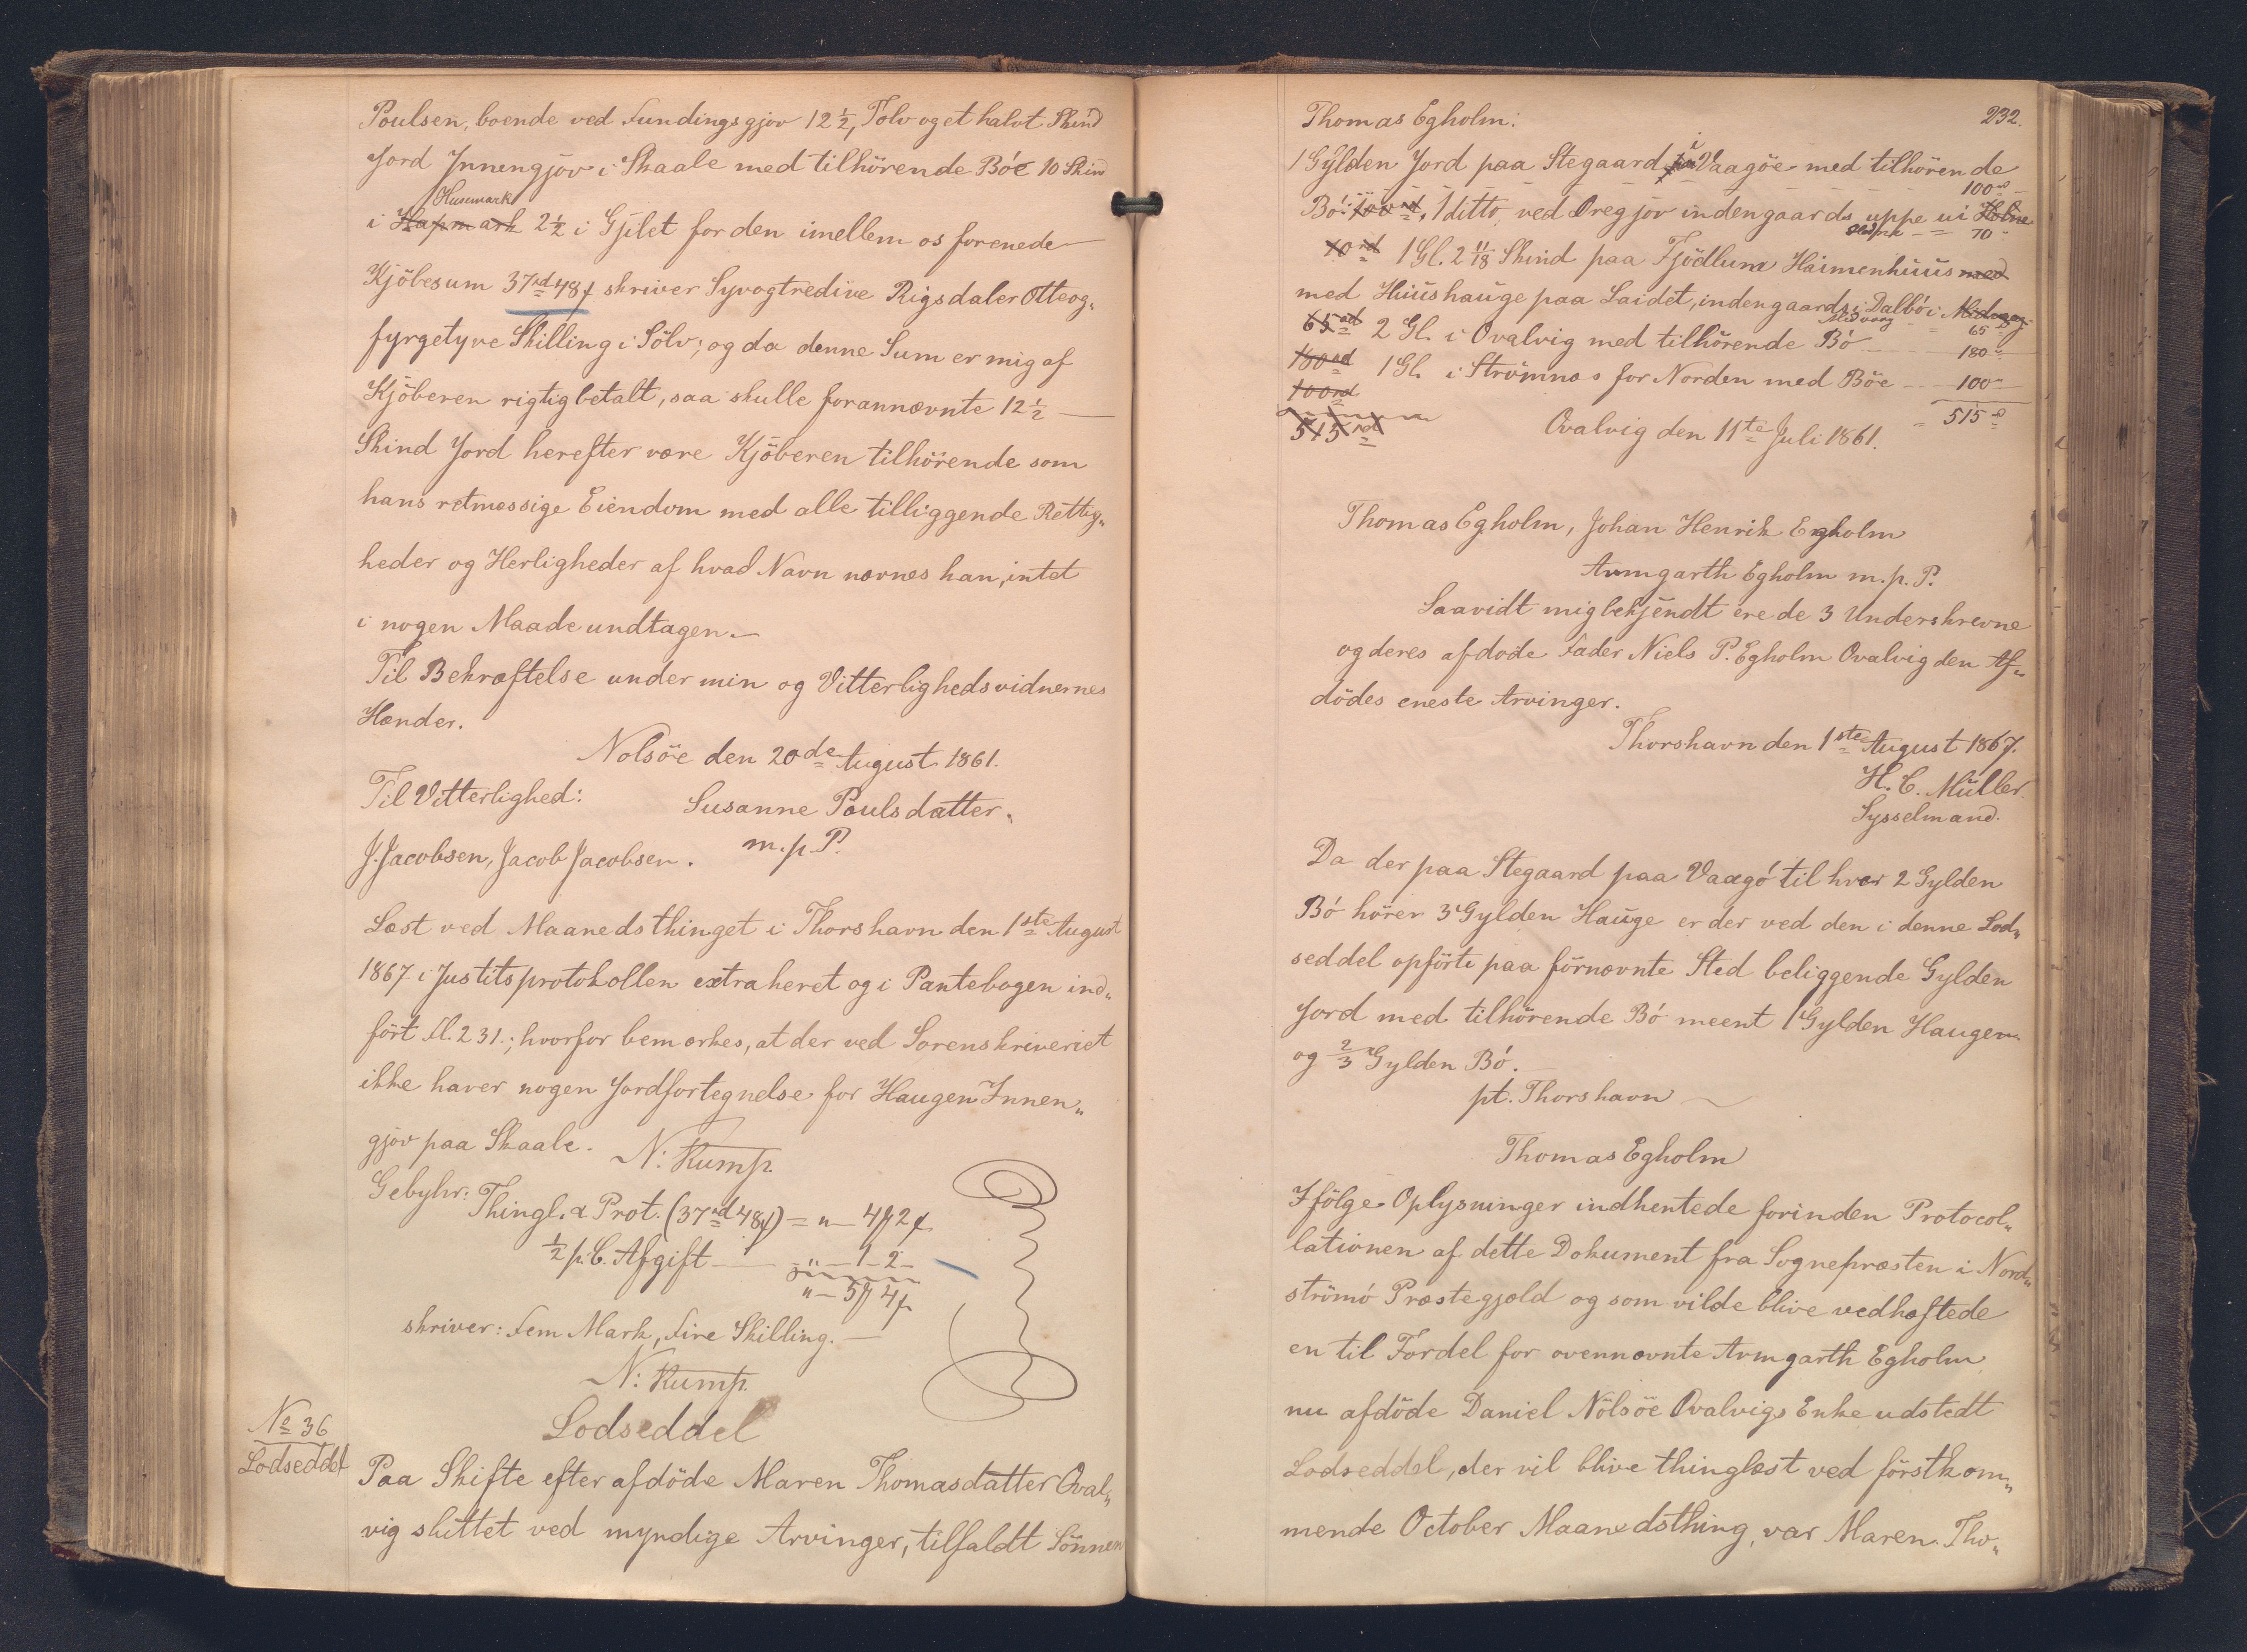 Poulsen, boende ved Fundingsgjov 12 1/2, Tolv og et halvt Skind
Jord Innengjov i Skaale med tilhörende Böe 10 Skind
Husemark
i 2 1/2 i Gjilet for den imellem os forenede
Kjöbesum 37rd 48ß skriver Syvogtredive Rigsdaler Otteog„
fyrgetyve Skilling i Sölv; og da denne Sum er mig af
Kjöberen rigtig betalt, saa skulle forannævnte 12 1/2
Skind Jord herefter være Kjöberen tilhörende som
hans retmæssige Eiendom med alle tilliggende Rettig„
heder og Herligheder af hvad Navn nævnes kan, intet
i nogen Maade undtagen.
Til Bekræftelse under min og Vitterlighedsvidnernes
Hænder.
Nolsöe den 20de August 1861.
Til Vitterlighed: Susanne Poulsdatter.
J. Jacobsen, Jacob Jacobsen. m.p.P.
Læst ved Maanedsthinget i Thorshavn den 1ste August
1867 i Justitsprotokollen extraheret og i Pantebogen ind„
fört fl. 231.; hvorfor bemærkes, at der ved Sorenskriveriet
ikke haver nogen Jordfortegnelse for Haugen Innen„
gjov paa Skaale. N: Rump.
Gebyhr: Thingl. & Prot. (37rd 48ß) = „ — 4ß 2ß
1/2 p.C. Afgift — „ — 1 - 2 -
„ — 5ß 4ß
skriver: Fem Mark, Fire Skilling. —
N: Rump.
No 36
Lodseddel
Lodseddel
Paa Skifte efter afdöde Maren Thomasdatter Qval„
vig sluttet ved myndige Arvinger, tilfaldt Sönnen
232.
Thomas Egholm:
1 Gylden Jord paa Stegaard i Vaagöe med tilhörende
100 -
Bö: 100rd, 1 ditto ved Oregjov indengaards uppe ui
70 -
70rd 1 Gl. 2 11/18 Skind paa Fjödlum Haimenhuus med
med Huushauge paa Laidet, indengaards i Dalbö i
Midvaag 65 -
65rd 2 Gl. i Qvalvig med tilhörende Bö — 180 -
180rd 1 Gl. i Strömnæs for Norden med Böe — 100 -
100rd
515rd 515 -
Qvalvig den 11te Juli 1861.
Thomas Egholm, Johan Henrik Egholm
Armgarth Egholm m.p.P.
Saavidt mig bekjendt ere de 3 Underskrevne
og deres afdöde Fader Niels P. Egholm Qvalvig den Af„
dödes eneste Arvinger.
Thorshavn den 1ste August 1867.
H. C. Müller.
Sysselmand.
Da der paa Stegaard paa Vaagö til hver 2 Gylden
Bö hörer 3 Gylden Hauge er der ved den i denne Lod„
seddel opförte paa förnævnte Sted beliggende Gylden
Jord med tilhörende Bö meent 1 Gylden Haugen
og 2/3 Gylden Bö.
pt. Thorshavn
Thomas Egholm
Ifölge Oplysninger indhentede forinden Protocol„
lationen af dette Dokument fra Sognepræsten i Nord„
strömö Præstegjæld og som vilde blive vedhæftede
en til Fordel for ovennævnte Armgarth Egholm
nu afdöde Daniel Nölsöe Qvalvigs Enke udstedt
Lodseddel, der vil blive thinglæst ved förstkom„
mende October Maanedsthing, var Maren Tho„